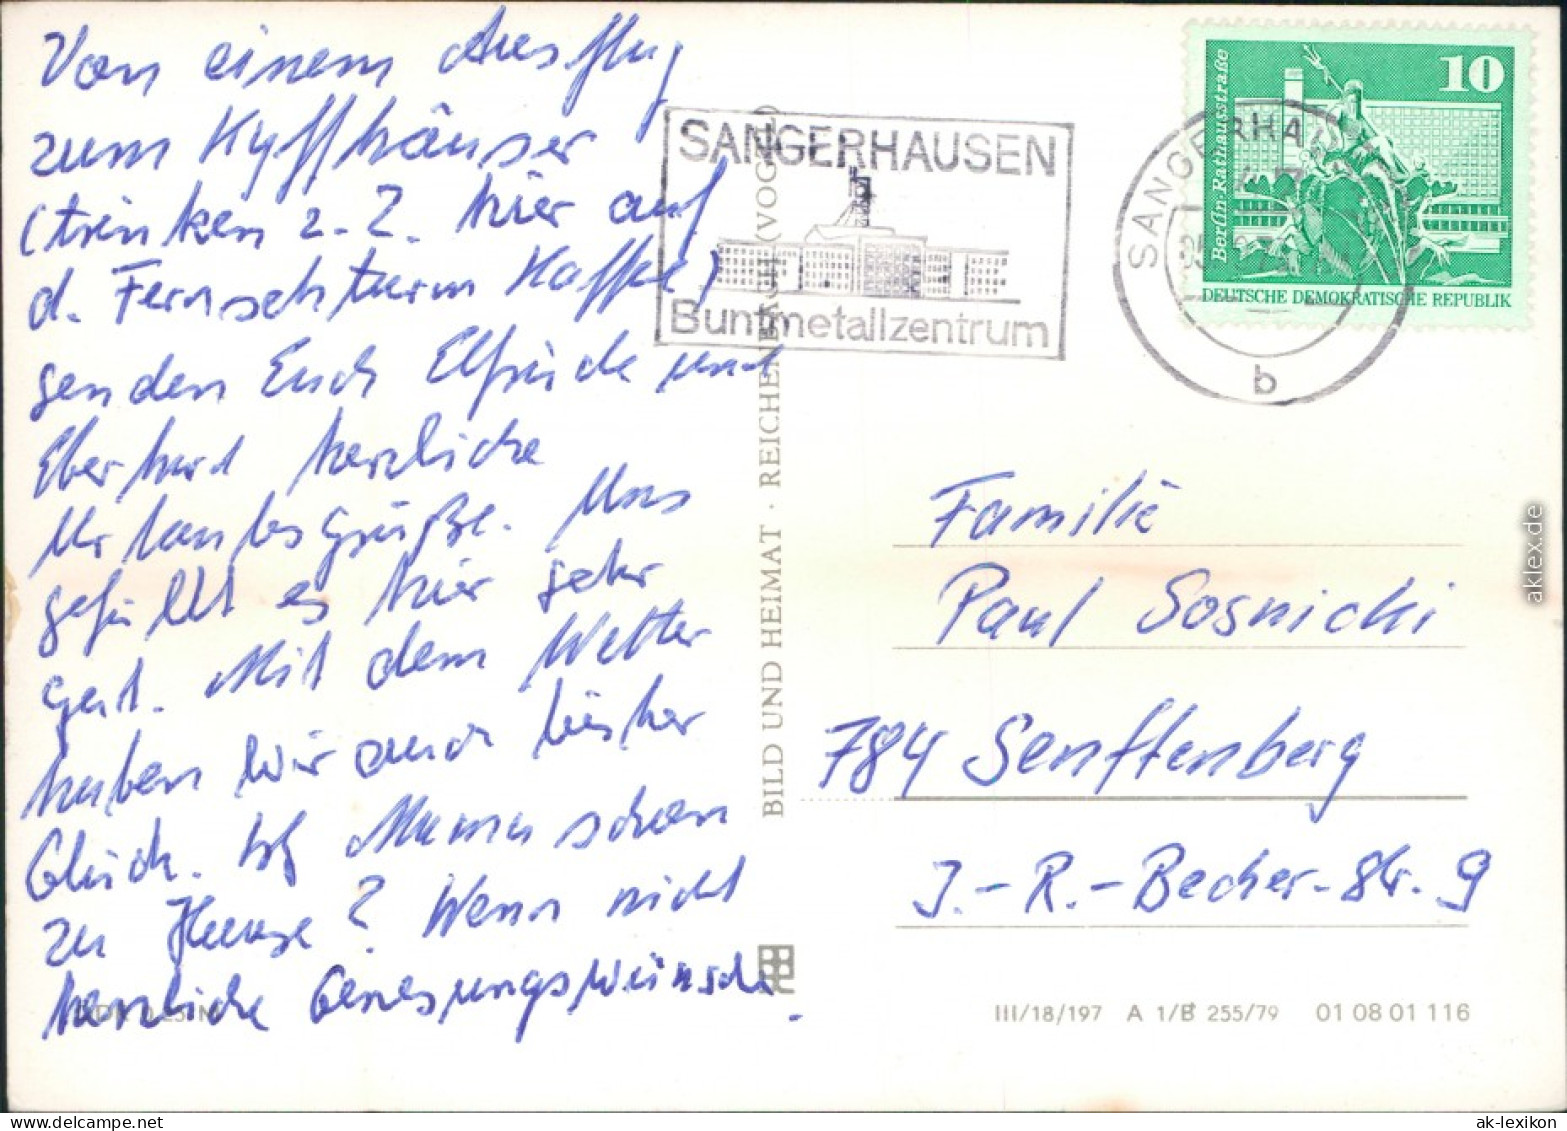 Von einem Ausflug
zum Kyffhäuser
(trinken z. Z. hier auf
d. Fernsehturm Kaffee)
senden Euch Elfriede und
Eberhard herzliche
Urlaubsgrüße. Uns
gefällt es hier sehr
gut. Mit dem Wetter
haben wir auch bisher
Glück. Ist Mama schon
zu Hause? Wenn nicht
herzliche Genesungswünsche.
SANGERHAUSEN
Buntmetallzentrum
SANGERHAUSEN
b
10
Berlin-Rathausstraße
DEUTSCHE DEMOKRATISCHE REPUBLIK
BILD UND HEIMAT · REICHENBACH (VOGTL)
Familie
Paul Sosnicki
784 Senftenberg
J.-R.-Becher-Str. 9
III/18/197 A 1/B 255/79 01 08 01 116
aklex.de
www.delcampe.net
ak-lexikon